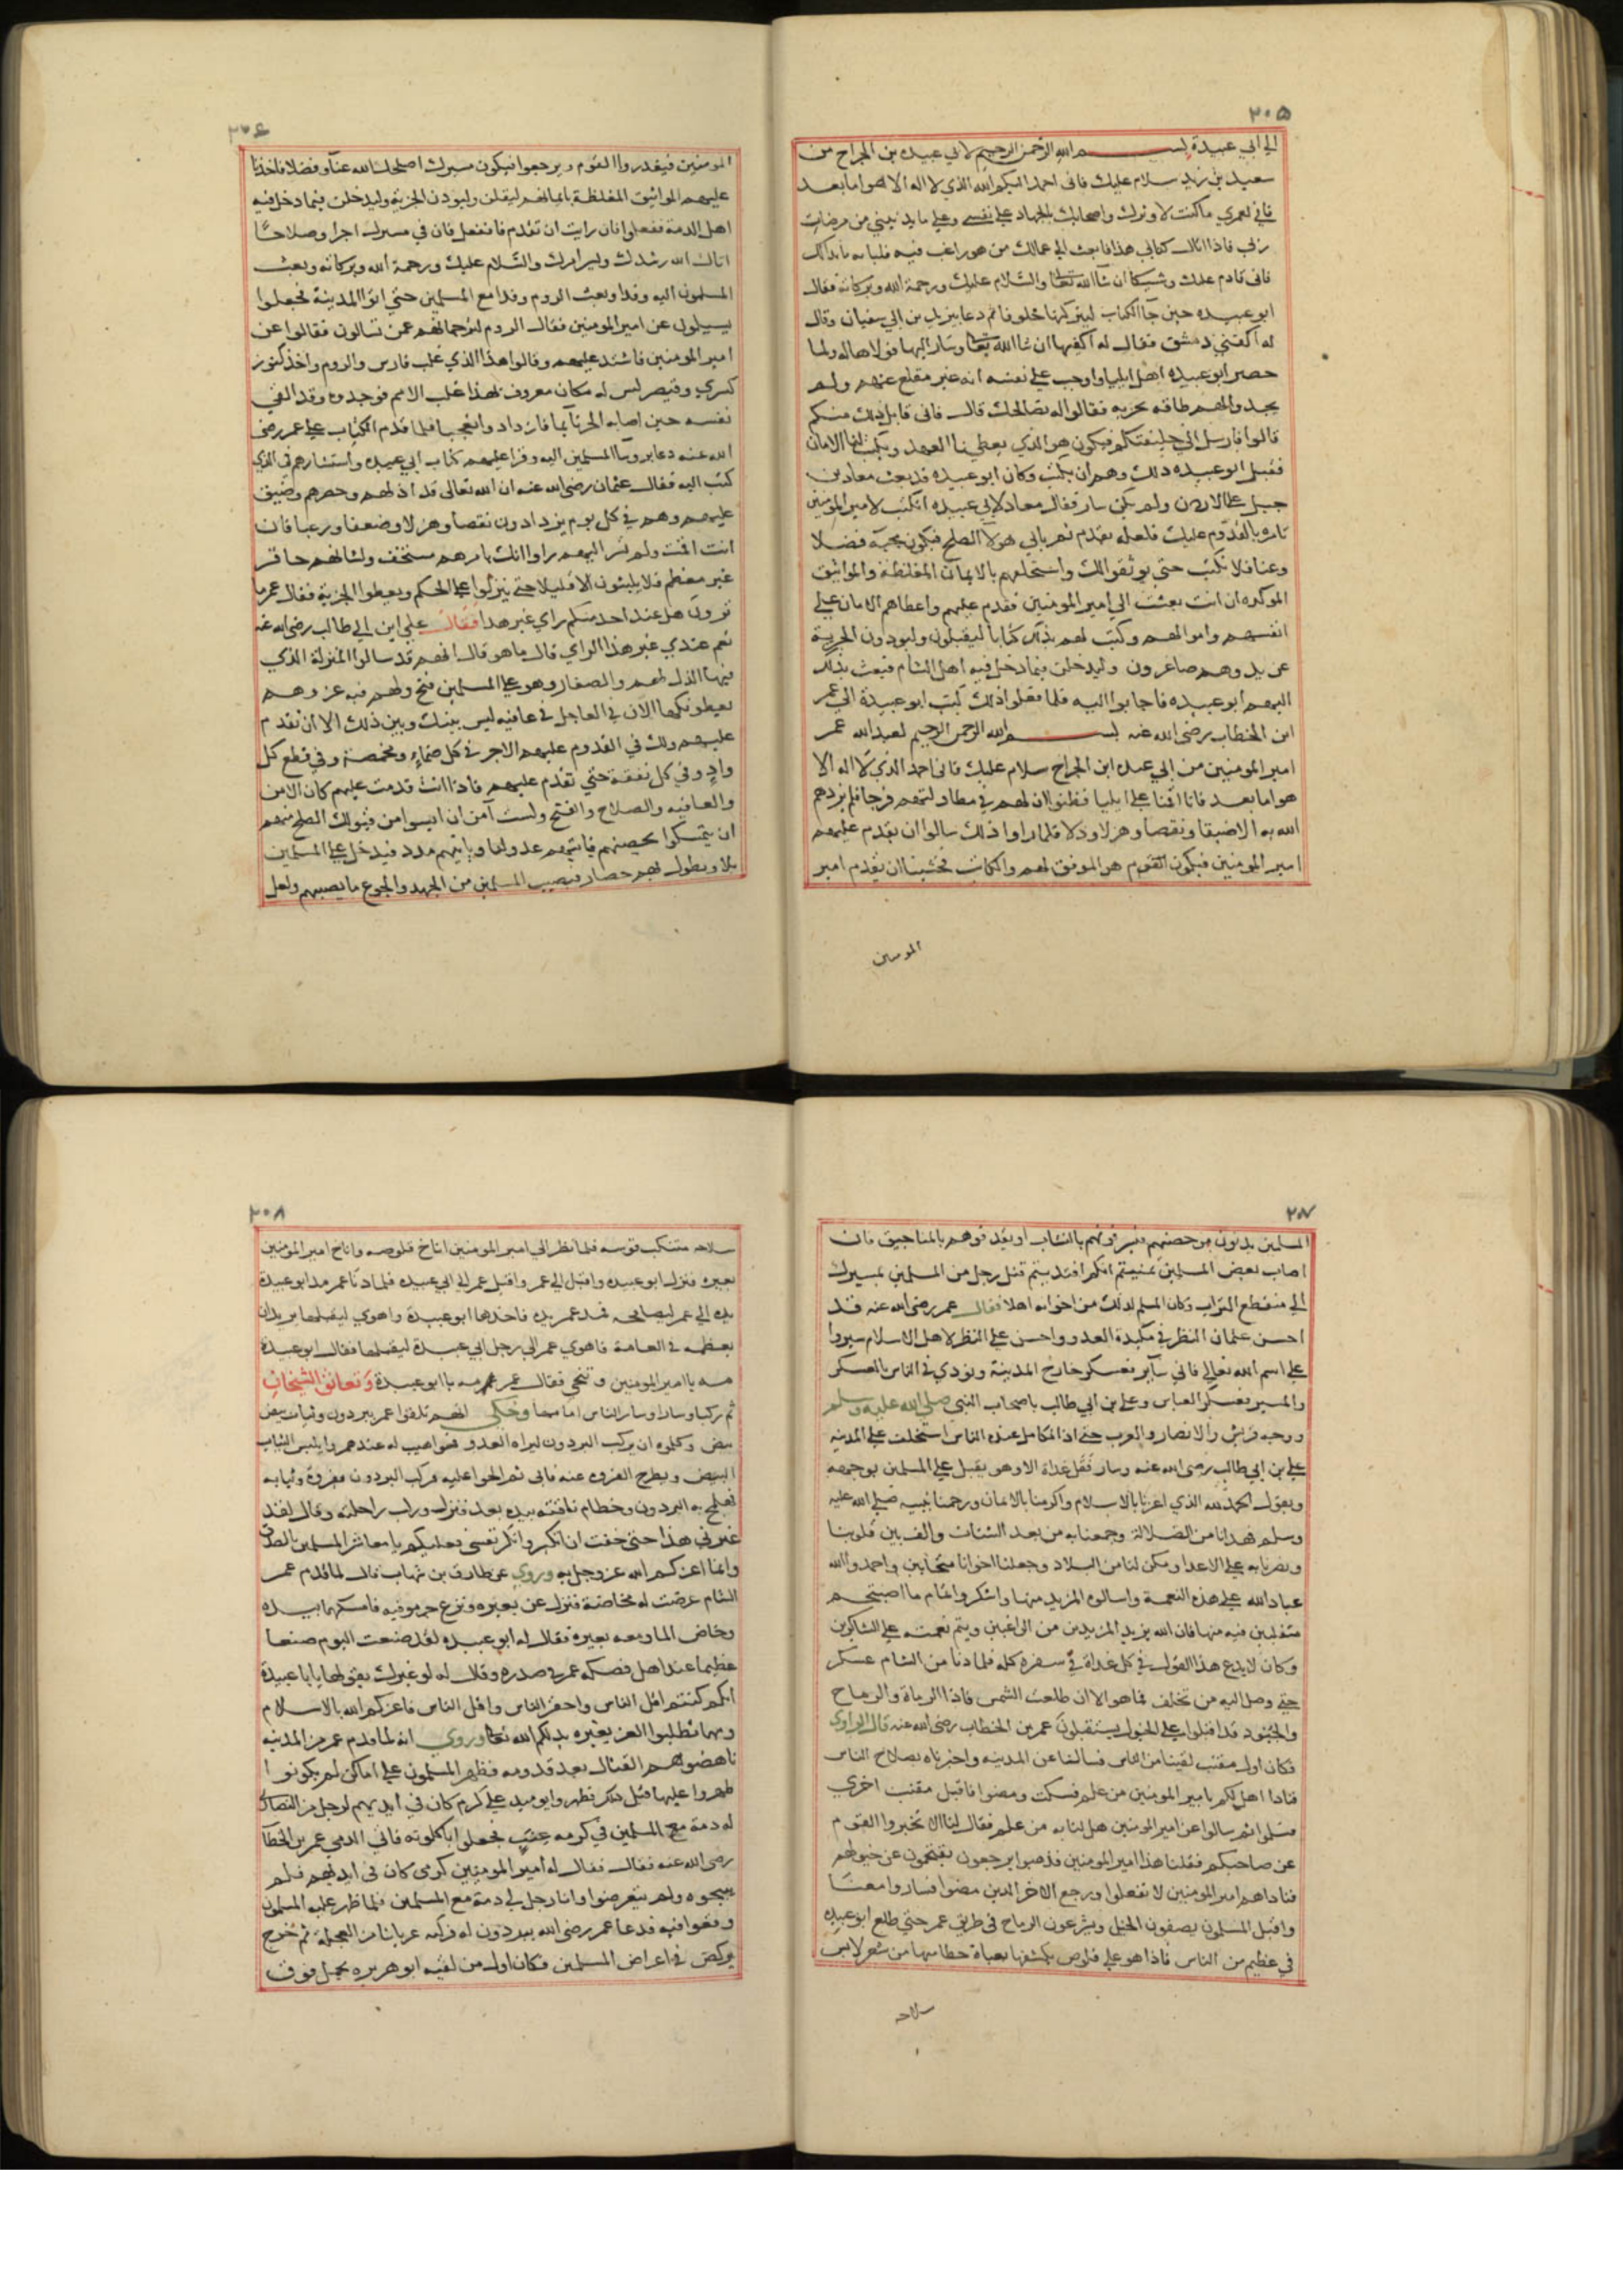 ٢٠٥
الى ابي عبيدة بسم الله الرحمن الرحيم لابي عبيده بن الجراح من
سعيد بن زيد سلام عليك فاني احمد اليكم الله الذي لا اله الا هو اما بعد
فاني لعمري ما كنت لاوثرك واصحابك بالجهاد علي نفسي وعلي ما يدنيني من مرضات
ربي فاذا اتاك كتابي هذا فابعث الي عمالك من هو راغب فيه فليا ما بدا لك
فاني قادم عليك وشيكا ان شا الله تعالى والسلام عليك ورحمة الله وبركاته فقال
ابو عبيده حين جآ الكتاب ليتركنها خلوفا ثم دعا يزيد بن ابي سفيان وقال
له اكفني دمشق فقال له اكفيها ان شا الله تعالى وسار اليها فولاها له ولما
حصر ابو عبيده اهل ايليا واوجب علي نفسه انه غير مقلع عنهم ولم
يجدوا لهم طاقه بحربه فقالوا له نصالحك قال فاني قابل ذلك منكم
قالوا فارسل الي خليفتكم فيكون هو الذي يعطينا العهد ويكتب لنا الامان
فقبل ابو عبيده ذلك وهم ان يكتب وكان ابو عبيده قد بعث معاذ بن
جبل على الاردن ولم يكن سار فقال معاذ لابي عبيده اتكتب لامير المومنين
تامره بالقدوم عليك فلعله يقدم ثم يابي هولا الصلح فيكون مجيه فضلا
وعنا فلا تكتب حتي يوثقوا لك واستحلفهم بالايمان المغلظة والمواثيق
الموكده ان انت بعثت الي امير المومنين فقدم عليهم واعطاهم الامان علي
انفسهم واموالهم وكتب لهم بذلك كتابا ليقبلون وليودون الجزية
عن يد وهم صاغرون وليدخلن فيما دخل فيه اهل الشام فبعث بذلك
اليهم ابو عبيده فاجابوا اليه فلما فعلوا ذلك كتب ابو عبيدة الي عمر
ابن الخطاب رضي الله عنه بسم الله الرحمن الرحيم لعبد الله عمر
امير المومنين من ابي عبيده ابن الجراح سلام عليك فاني احمد الذي لا اله الا
هو اما بعد فانا اقمنا علي ايليا فظنوا ان لهم في مطاولتهم فرجا فلم يزدهم
الله به الا ضيقا ونقصا وهزلا وذلا فلما راوا ذلك سالوا ان يقدم عليهم
امير المومنين فيكون القوم هو الموفق لهم والكاتب فخشينا ان يقدم امير
المومنين
٢٠٦
المومنين فيغدروا القوم ويرجعوا فيكون مسيرك اصلحك الله عنآ وفضلا فاخذنا
عليهم المواثيق المغلظة بايمانهم ليقبلن وليودن الجزية وليدخلن فيما دخل فيه
اهل الذمة ففعلوا فان رايت ان تقدم فافعل فان في مسيرك اجرا وصلاحا
اتاك الله رشدك ويسر امرك والسلام عليك ورحمة الله وبركاته وبعث
المسلمون اليه وفدا وبعث الروم وفدا مع المسلمين حتي اتوا المدينة فجعلوا
يسيلون عن امير المومنين فقال الروم لترجمانهم عمن تسالون فقالوا عن
امير المومنين فاشتد عليهم وقالوا هذا الذي غلب فارس والروم واخذ كنوز
كسري وقيصر ليس له مكان معروف بهذا غلب الامم فوجدوه وقد القي
نفسه حين اصابه الحر نآيما فازداد وا تعجبا فلما قدم الكتاب علي عمر رضي
الله عنه دعا بروسآ المسلمين اليه وقرا عليهم كتاب ابي عبيده واستشارهم في الذي
كتب اليه فقال عثمان رضي الله عنه ان الله تعالى قد اذلهم وحصرهم وضيق
عليهم وهم في كل يوم يزدادون نقصا وهزلا وضعفا ورعبا فان
انت اقمت ولم تسر اليهم راوا انك بامرهم مستخف ولشانهم حاقر
غير معظم فلا يلبثون الا قليلا حتي ينزلوا علي الحكم ويعطوا الجزية فقال عمر ما
ترون هل عند احد منكم راي غير هذا فقال علي ابن ابي طالب رضي الله عنه
نعم عندي غير هذا الراي قال ما هو قال انهم قد سالوا المنزلة الذي
فيها الذل لهم والصغار وهو علي المسلمين فتح ولهم فيه عز وهم
يعطونكها الآن في العاجل في عافيه ليس بينك وبين ذلك الا ان تقدم
عليهم ولك في القدوم عليهم الاجر في كل ظماء ومخمصة وفي قطع كل
واد وفي كل نفقة حتي تقدم عليهم فاذا انت قدمت عليهم كان الامن
والعافيه والصلاح والفتح ولست آمن ان ايسوا من قبولك الصلح منهم
ان يتمسكوا بحصنهم فياتيهم عدو لنا وياتيهم مدد فيدخل علي المسلمين
بلا ويطول بهم حصار فيصيب المسلمين من الجهد والجوع ما يصيبهم ولعل
٢٠٧
المسلمين يدنون من حصنهم فيرمونهم بالنشاب او يقذفوهم بالمناجيق فان
اصاب بعض المسلمين تمنيتم انكم افتديتم قتل رجل من المسلمين بمسيرك
الي منقطع التراب وكان المسلم لذلك من اخوانه اهلا فقال عمر رضي الله عنه قد
احسن عثمان النظر في مكيدة العدو واحسن علي النظر لاهل الاسلام سيروا
علي اسم الله تعالي فاني سآير فعسكر خارج المدينة ونودي في الناس بالعسكر
والمسير فعسكر العباس وعلي بن ابي طالب باصحاب النبي صلي الله عليه وسلم
ووجوه قريش والانصار والعرب حتي اذا تكامل عنده الناس استخلف علي المدينه
علي بن ابي طالب رضي الله عنه وسار فقل غداة الا وهو يقبل علي المسلمين بوجهه
ويقول الحمد لله الذي اعزنا بالاسلام واكرمنا بالايمان ورحمنا بنبيه صلي الله عليه
وسلم فهدانا من الضلالة وجمعنا به من بعد الشتات والف بين قلوبنا
ونصرنا به علي الاعدا ومكن لنا من البلاد وجعلنا اخوانا متحابين واحمدوا الله
عباد الله علي هذه النعمة واسالوه المزيد منها واشكروا تمام ما اصبحتم
متقلبين فيه منها فان الله يزيد المزيدين من الراغبين ويتم نعمته علي الشاكرين
وكان لا يدع هذا القول في كل غداة في سفره كله فلما دنا من الشام عسكر
حتي وصل اليه من تخلف فما هو الا ان طلعت الشمس فاذا الرماة والرماح
والجنود قد اقبلوا علي الخيول يستقبلون عمر بن الخطاب رضي الله عنه قال الراوي
فكان اول مقنب لقينا من الناس فسالنا عن المدينه واخبرناه بصلاح الناس
فنادا اهل لكم بامير المومنين من علم فسكت ومضوا فاقبل مقنب اخري
فسلموا ثم سالوا عن امير المومنين هل لنا به من علم فقال لنا الا تخبروا القوم
عن صاحبكم فقلنا هذا امير المومنين فذهبوا يرجعون يقتحمون عن خيولهم
فناداهم امير المومنين لا تفعلوا ورجع الاخر الذين مضوا فساروا معنا
واقبل المسلمون يصفون الخيل ويشرعون الرماح في طريق عمر حتي طلع ابو عبيده
في عظيم من الناس فاذا هو علي قلوص يكتنفها بعباة خطامها من شعر لابس
سلاحه
٢٠٨
سلاحه متنكب قوسه فلما نظر الي امير المومنين اناخ قلوصه واناخ امير المومنين
بعيره فنزل ابو عبيده واقبل الي عمر واقبل عمر الي ابي عبيده فلما دنا عمر مد ابو عبيدة
يده الي عمر ليصافحه فمد عمر يده فاخذها ابو عبيدة واهوي ليقبلها يريد ان
يعظمه في العامة فاهوي عمر الي رجل ابي عبيدة ليقبلها فقال ابو عبيدة
مه يا امير المومنين وتنحي فقال عمر مه يا ابو عبيدة وتعانق الشيخان
ثم ركبا وسارا وسار الناس امامهما وحكي انهم تلقوا عمر ببرذون وثياب بيض
بيض وكلموه ان يركب البرذون ليراه العدو فهو اهيب له عندهم وا يلبس الثياب
البيض ويطرح الفروه عنه فابي ثم الحوا عليه فركب البرذون بفروة وثيابه
فهملج به البرذون وخطام ناقته بيده بعد فنزل وركب راحلته وقال لقد
غيرني هذا حتي خفت ان اتكبر وانكر نفسي فعليكم يا معاشر المسلمين بالقصد
وبما اعزكم الله عز وجل به وروي عن طارق بن شهاب قال لما قدم عمر
الشام عرضت له مخاضة فنزل عن بعيره ونزع جرموقيه فامسكهما بيده
وخاض الما ومعه بعيره فقال له ابو عبيده لقد صنعت اليوم صنعا
عظيما عند اهل فصكه عمر في صدره وقال له لو غيرك يقولها يا ابا عبيدة
انكم كنتم اذل الناس واحقر الناس واقل الناس فاعزكم الله بالاسلام
ومهما تطلبوا العز بغيره يذلكم الله تعالى وروي انه لما قدم عمر من المدينه
ناهضوهم القتال بعد قدومه فظهر المسلمون علي اماكن لم يكونوا
ظهروا عليها قبل ذلك فظهروا يوميذ علي كرم كان في ايديهم لرجل من النصارى
له ذمة مع المسلمين في كرمه عنب فجعلوا ياكلونه فاتي الذمي عمر بن الخطاب
رضي الله عنه فقال فقال له امير المومنين كرمي كان في ايديهم فلم
يبيحوه ولم يتعرضوا وانا رجل لي ذمة مع المسلمين فلما ظهر عليه المسلمون
وقعوا فيه فدعا عمر رضي الله ببرذون له فركبه عريانا من العجلة ثم خرج
يركض في اعراض المسلمين فكان اول من لقيه ابو هريره يحمل فوق